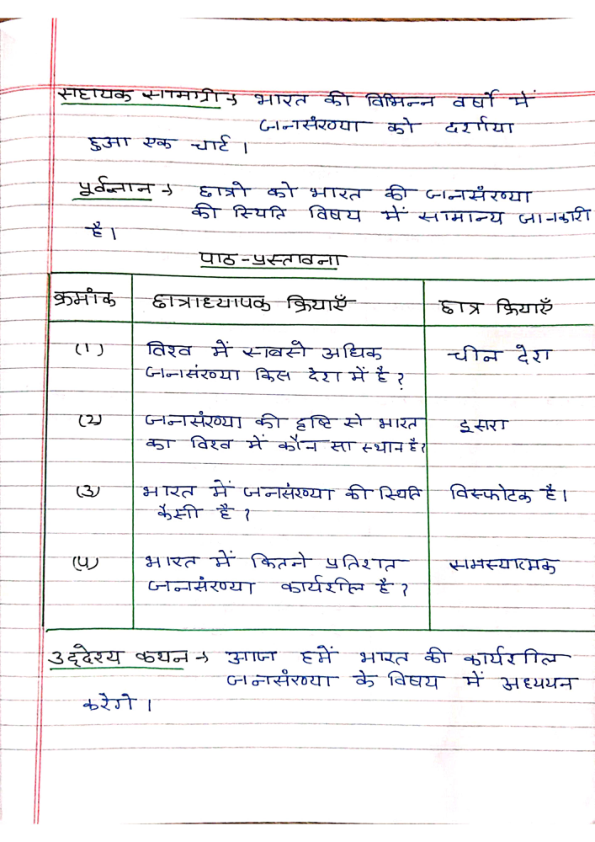 सहायक सामग्री → भारत की विभिन्न वर्षों में
जनसंख्या को दर्शाया
हुआ एक चार्ट ।
पूर्वज्ञान → छात्रों को भारत की जनसंख्या
की स्थिति विषय में सामान्य जानकारी
है।
पाठ-प्रस्तावना
क्रमांक छात्राध्यापक क्रियाएँ छात्र क्रियाएँ
(1) विश्व में सबसे अधिक चीन देश
जनसंख्या किस देश में है ?
(2) जनसंख्या की दृष्टि से भारत दूसरा
का विश्व में कौन सा स्थान है ?
(3) भारत में जनसंख्या की स्थिति विस्फोटक है।
कैसी है ?
(4) भारत में कितने प्रतिशत समस्यात्मक
जनसंख्या कार्यशील है ?
उद्देश्य कथन → आज हमें भारत की कार्यशील
जनसंख्या के विषय में अध्ययन
करेगे ।